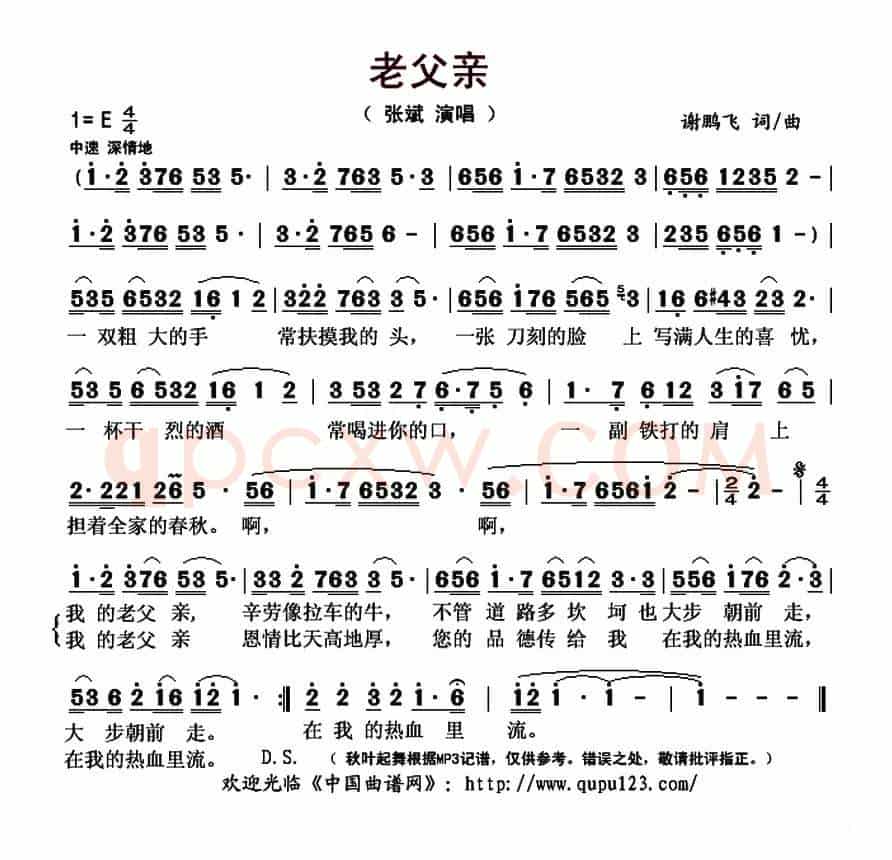 老父亲
( 张斌 演唱 )
1= E 4/4
谢鹏飞 词/曲
中速 深情地
(1·2 3765 35· | 3·2 7635·3 | 656 1·7 6532 3 | 656 1235 2 - |
1·2 376 53 5· | 3·2 765 6 - | 656 1·7 6532 3 | 235 656 1 - )|
535 6532 16 1 2 | 322 763 3 5· | 656 176 565 5 3 | 16 6#43 23 2· |
一双粗 大的手 常扶摸我的 头， 一张 刀刻的脸 上 写满人生的喜 忧，
53 5 6 532 16 1 2 | 3 532 7 6·7 5 6 | 1· 7 612 3 17 6 5 |
一 杯干 烈的酒 常喝进你的口， 一 副 铁打的 肩 上
2·221 26 5 · 56 | 1·7 6532 3 · 56 | 1·7 6561 2 - | 2/4 2 - | 4/4
担着全家的春秋。啊， 啊，
1·2 376 53 5· | 33 2 763 3 5· | 656 1·7 6512 3 | 556 176 2·3 |
我 的老父 亲， 辛劳像拉车的牛， 不管 道 路多 坎 坷 也大步 朝前 走，
我 的老父 亲 恩情比天高地厚， 您的 品 德传 给 我 在我的热血里流，
53 6 2 16 12 1 · :‖ 2 2 3 2·1 6 | 12 1 · 1 - | 1 - - - ‖
大 步朝前 走。 在 我 的热血 里 流。
在我的热血里流。 D.S. ( 秋叶起舞根据MP3记谱，仅供参考。错误之处，敬请批评指正。)
欢迎光临《中国曲谱网》：http://www.qupu123.com/
qpcxw.COM